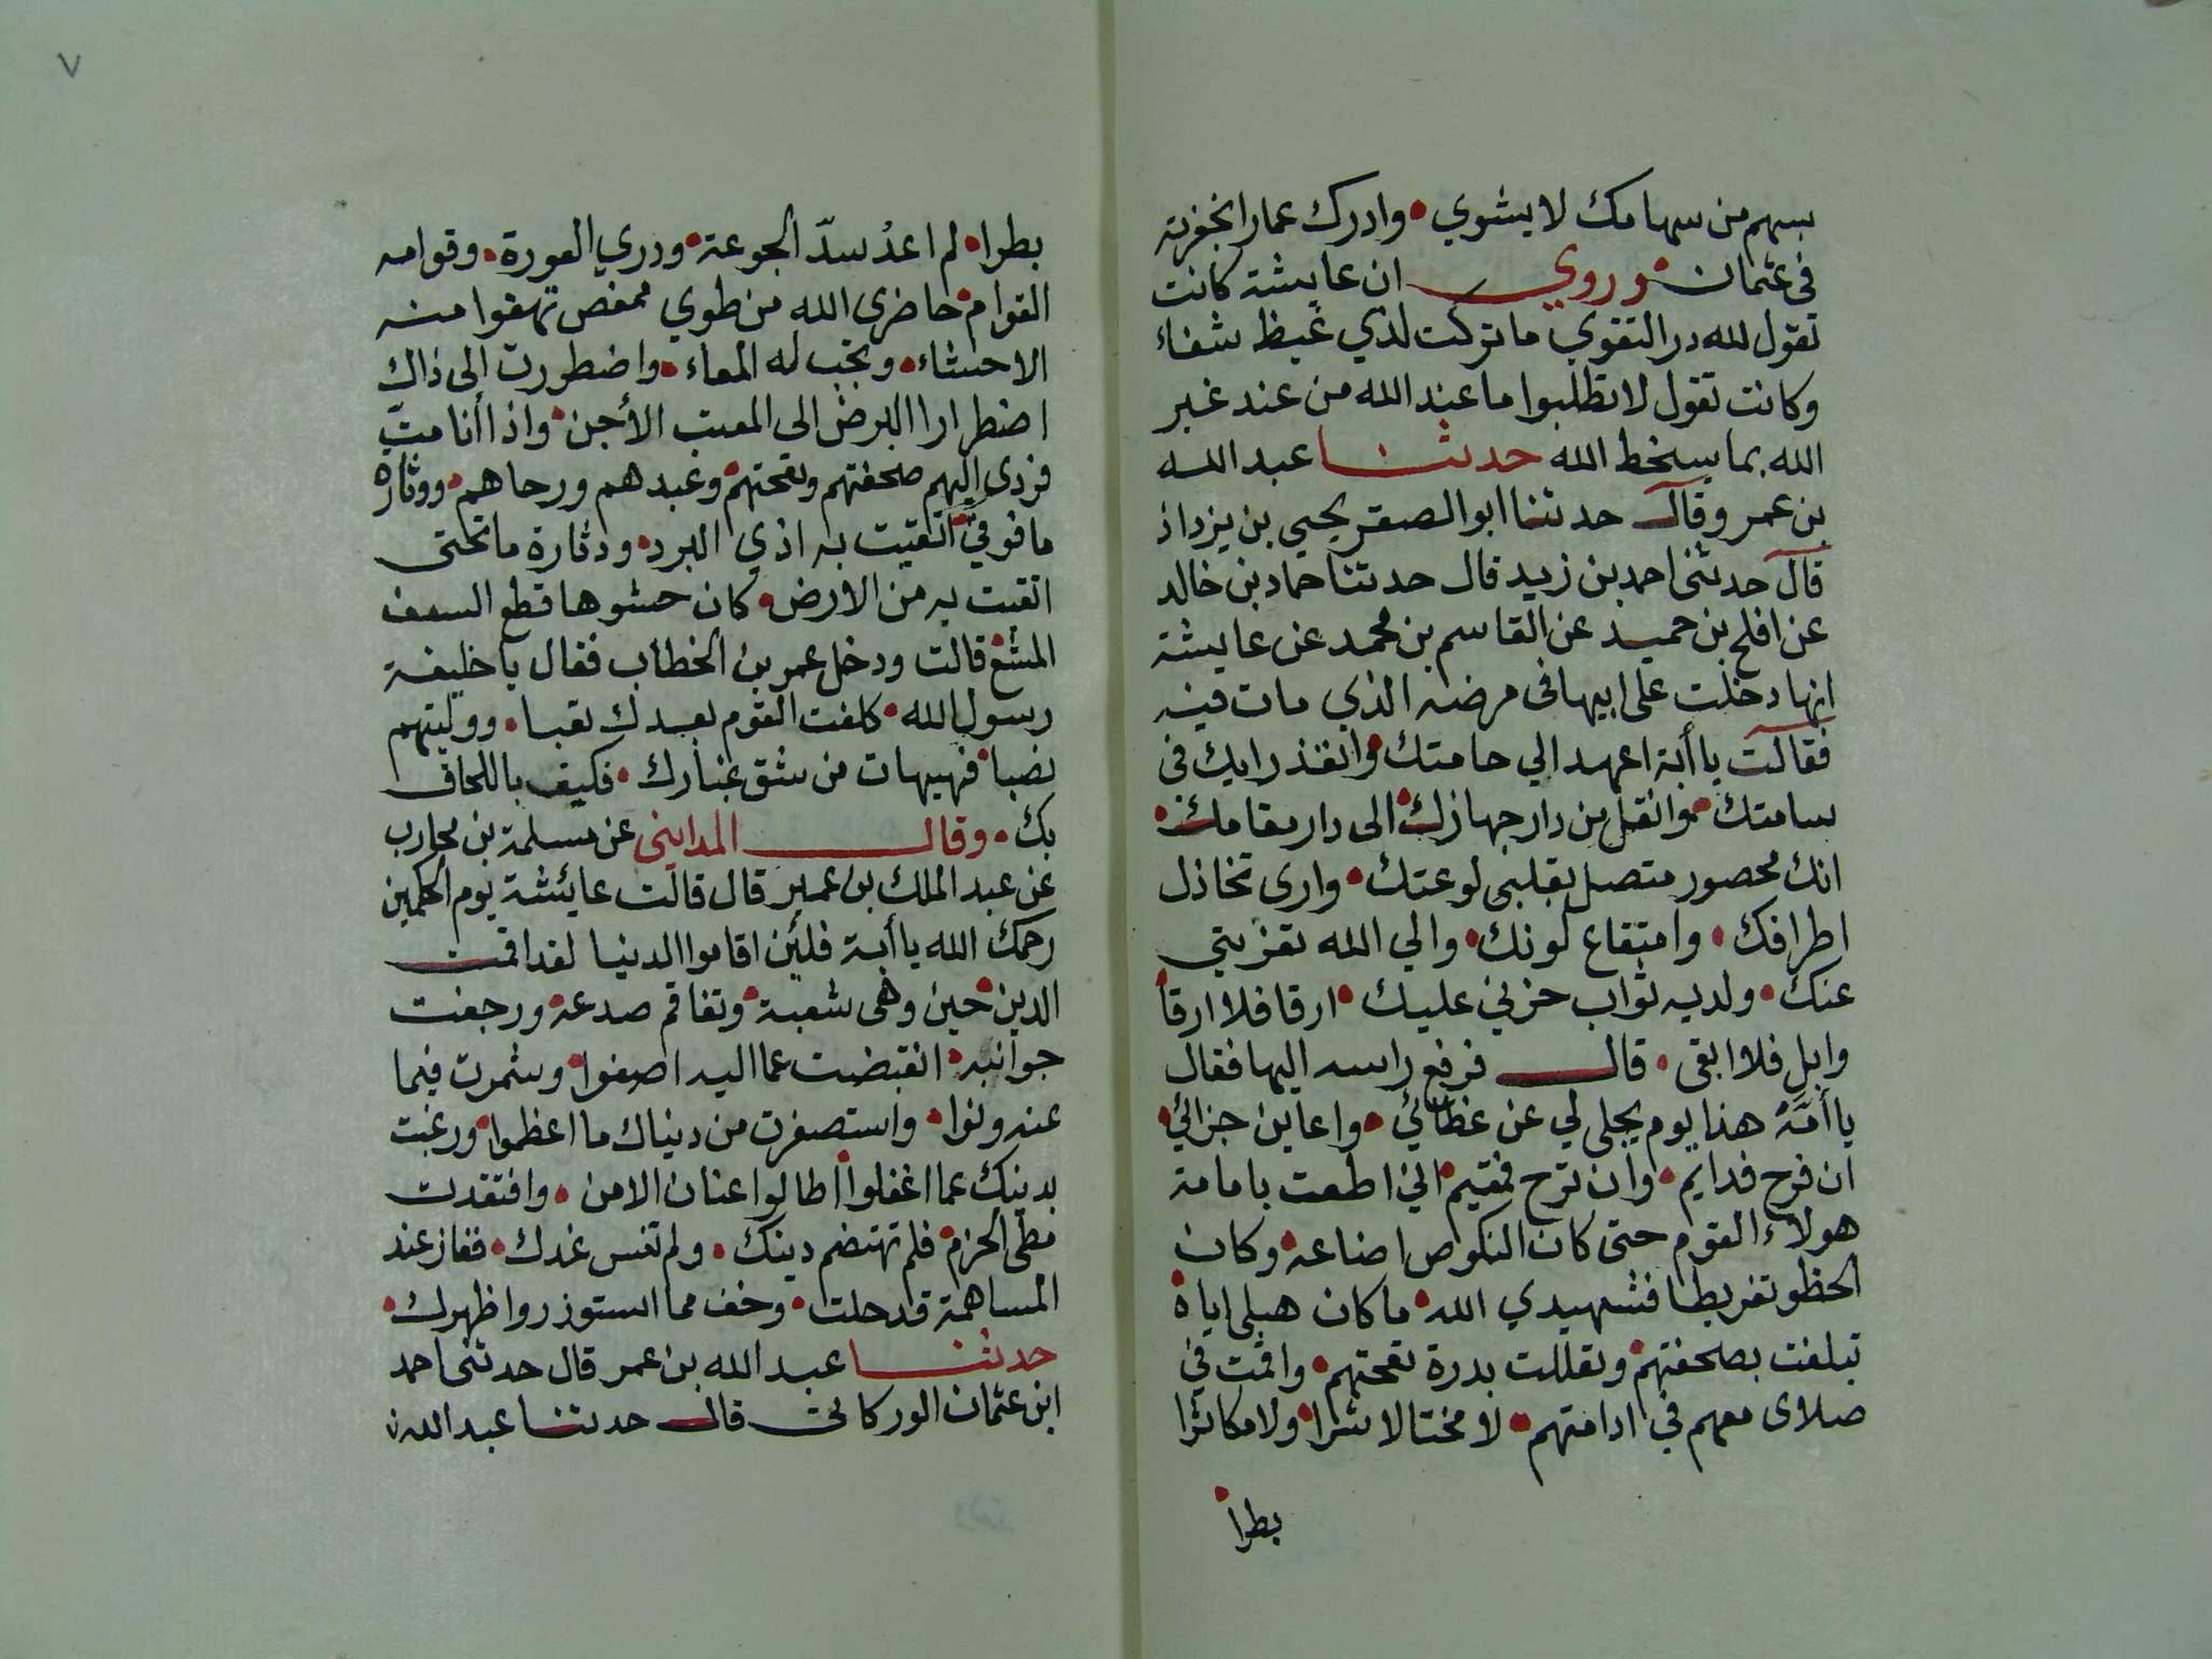 بسهم من سهامك لا يشوي • وادرك عمارا بخفرته
في عثمان • وروي ان عايشة كانت
تقول لله در التقوي ما تركت لذي غيظ شفاء
وكانت تقول لا تطلبوا ما عند الله من عند غير
الله بما يسخط الله حدثنا عبد الله
بن عمر وقال حدثنا ابو الصقر يحيي بن يزداذ
قال حدثني احمد بن زيد قال حدثنا حماد بن خالد
عن افلح بن حميد عن القاسم بن محمد عن عايشة
انها دخلت على ابيها في مرضه الذي مات فيه
فقالت يا أبة اعهد الي حامتك • وانفذ رايك في
سامتك • وانقل من دار جهازك • الى دار مقامك •
انك محصور متصل بقلبي لوعتك • وارى تخاذل
اطرافك • وامتقاع لونك • والي الله تعزيتي
عنك • ولديه ثواب حزني عليك • ارقا فلا ارقأ
وابل فلا ابقى • قال فرفع راسه اليها فقال
يا أمّة هذا يوم يجلى لي عن غطائي • واعاين جزائي •
ان فرح فدايم • وان ترح فمقيم • اني اطعت بامامة
هولاء القوم حتى كان النكوص اضاعة • وكان
الخطو تفريطا فشهيدي الله • ما كان هبلي اياه
تبلغت بصحفتهم • وتعللت بدرة لقحتهم • واقمت في
صلاى معهم في ادامتهم • لا مختالا اشرا • ولا مكاثرا
بطرا
٧
بطرا • لم اعد سدّ الجوعة • ووري العورة • وقوامه
القوام • حاضرى الله من طوي ممغص تهفوا منه
الاحشاء • وتجب له المعاء • واضطررت الى ذاك
اضطرارا البرض الى المعيب الأجن • واذا أنا متّ
فردى اليهم صحفتهم ولقحتهم • وعبدهم ورحاهم • ووثارة
ما فوقي اتقيت به اذي البرد • ودثارة ما تحتى
اتقيت به من الارض • كان حشوها قطع السعف
المشع • قالت ودخل عمر بن الخطاب فقال يا خليفة
رسول الله • كلفت القوم بعدك تعبا • ووليتهم
نصبا • فهيهات من شق غبارك • فكيف باللحاق
بك • وقال المدايني عن مسلمة بن محارب
عن عبد الملك بن عمير قال قالت عائشة يوم الحكمين
رحمك الله يا أبة فلئن اقاموا الدنيا لقد اقمت
الدين • حين وهى شعبة • وتفاقم صدعه • ورجفت
جوانبه • انقبضت عما اليه اصغوا • وشمرت فيما
عنه ونوا • واستصغرت من دنياك ما اعظموا • ورغبت
بدينك عما اغفلوا • اطالوا عنان الامن • وافتقدت
مطى الحزم • فلم تهتضم دينك • ولم تنس غدك • ففاز عند
المساهمة قدحلت • وخف مما استوزروا ظهرك •
حدثنا عبد الله بن عمر قال حدثنى احمد
ابن عثمان الوركانى قال حدثنا عبد الله